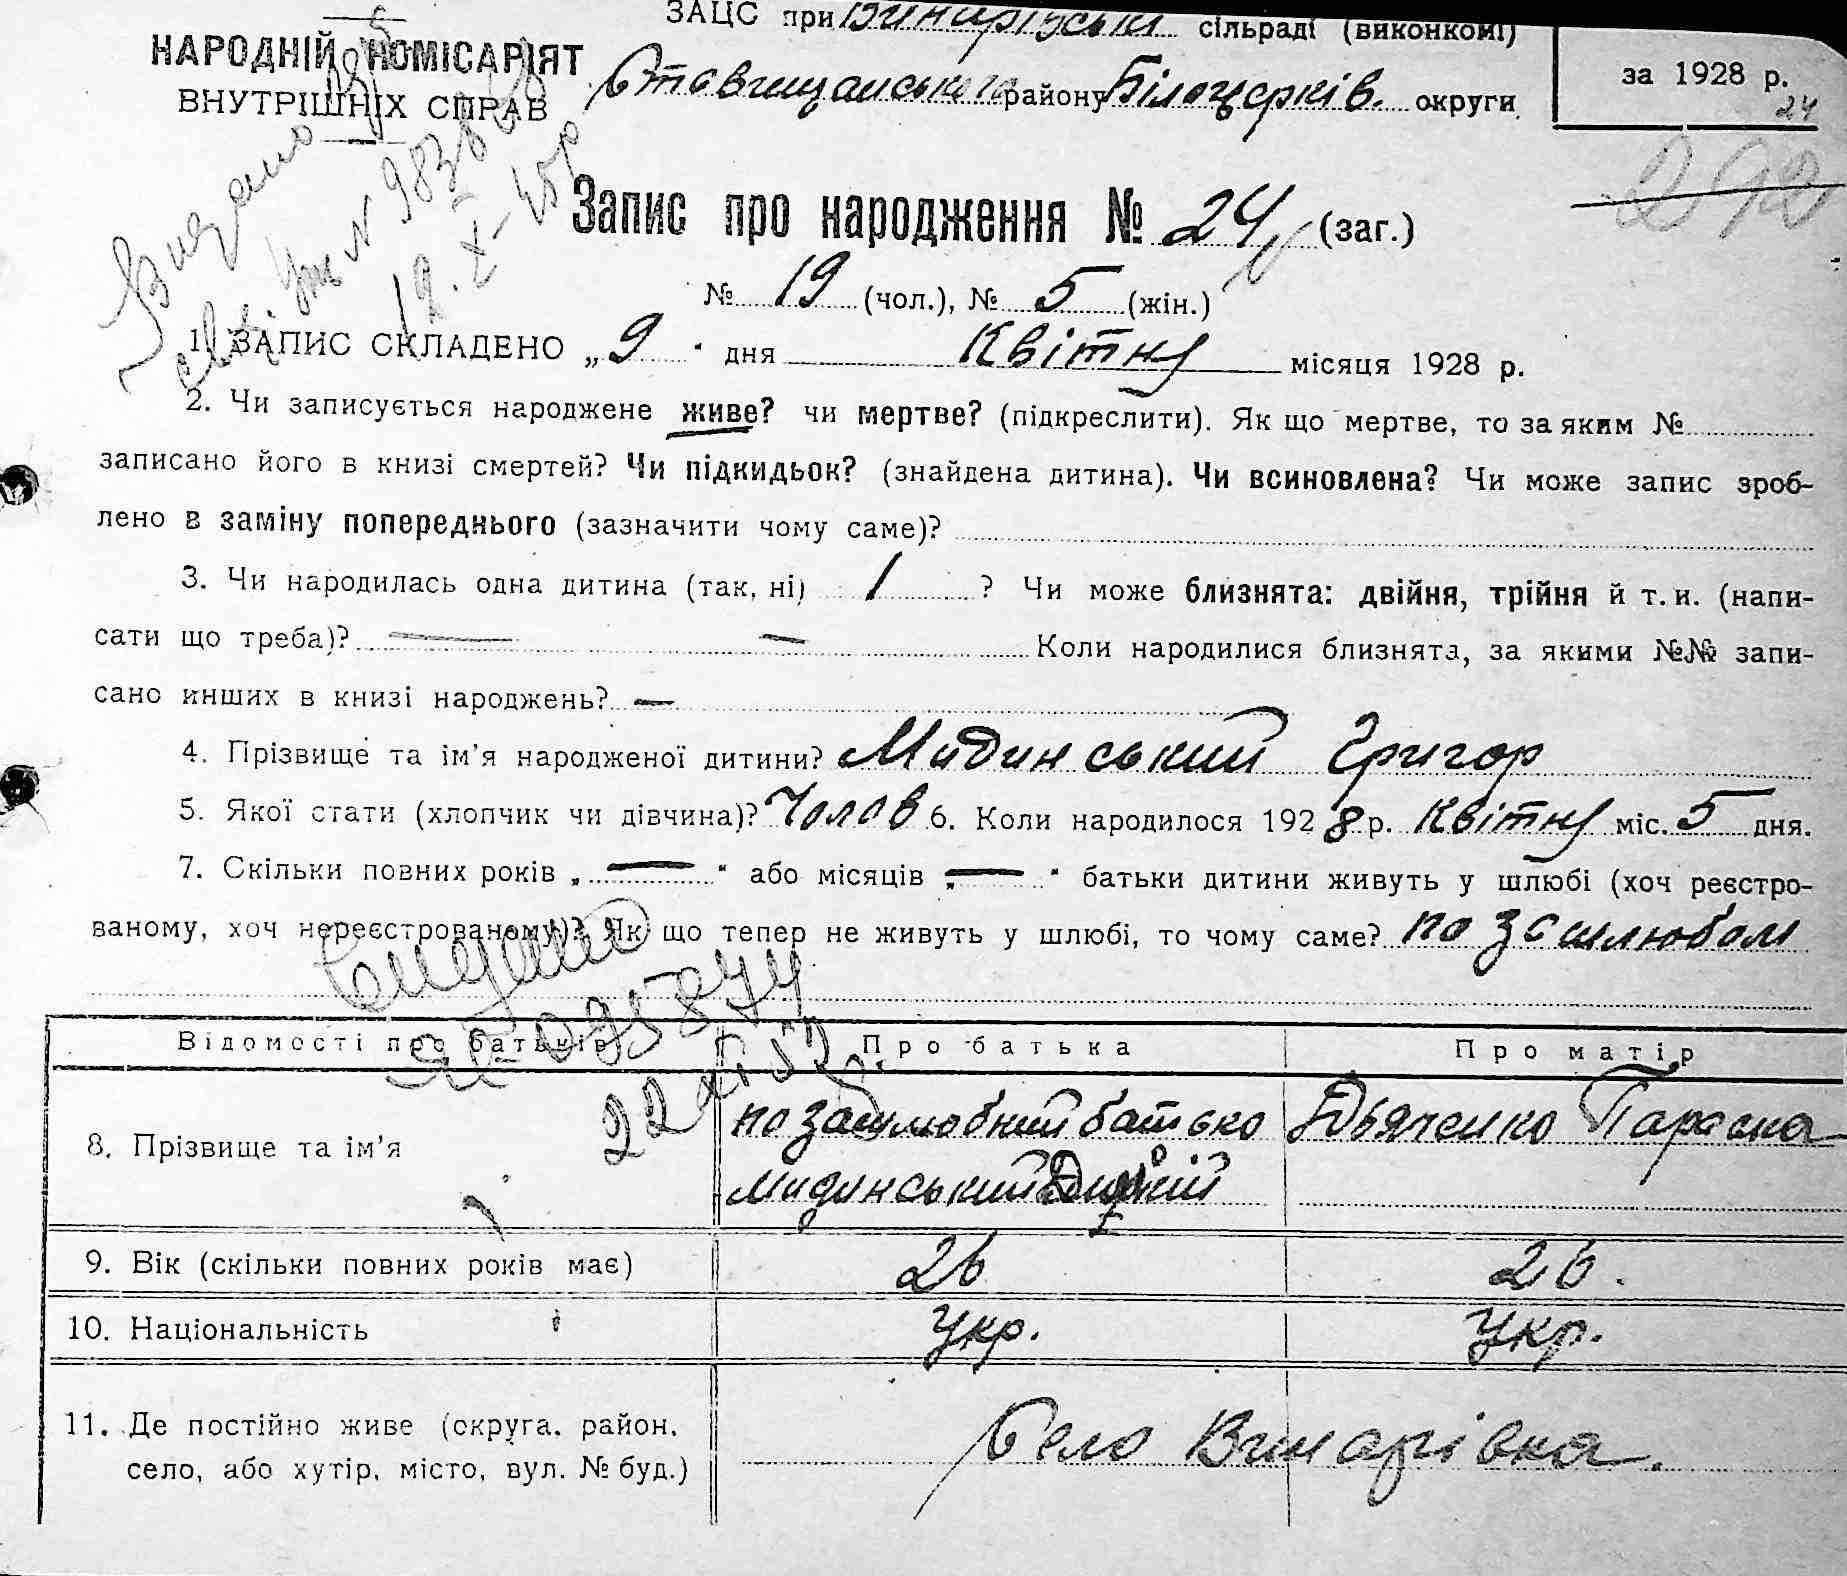 ЗАЦС при Винарівські сільраді (виконкомі)
НАРОДНІЙ КОМІСАРІЯТ
ВНУТРІШНІХ СПРАВ
Ставищанського району Білоцерків. округи
за 1928 р.
24
292
Видано
свід
12.X-45р
Запис про народження № 24 (заг.)
№ 19 (чол.), № 5 (жін.)
1. ЗАПИС СКЛАДЕНО „9" дня Квітня місяця 1928 р.
2. Чи записується народжене живе? чи мертве? (підкреслити). Як що мертве, то за яким №
записано його в книзі смертей? Чи підкидьок? (знайдена дитина). Чи всиновлена? Чи може запис зроб-
лено в заміну попереднього (зазначити чому саме)?
3. Чи народилась одна дитина (так, ні) 1 ? Чи може близнята: двійня, трійня й т. и. (напи-
сати що треба)? — — Коли народилися близнята, за якими №№ запи-
сано инших в книзі народжень? —
4. Прізвище та ім'я народженої дитини? Мидинський Григор
5. Якої стати (хлопчик чи дівчина)? Чолов 6. Коли народилося 1928 р. Квітня міс. 5 дня.
7. Скільки повних років „—" або місяців „—" батьки дитини живуть у шлюбі (хоч реєстро-
ваному, хоч нереєстрованому)? Як що тепер не живуть у шлюбі, то чому саме? по за шлюбом
095874
22 XI 52
Відомості про батьків Про батька Про матір
8. Прізвище та ім'я по зашлюбний батько Дьяченко Параска
Мидинський
9. Вік (скільки повних років має) 26 26.
10. Національність Укр. Укр.
11. Де постійно живе (округа, район, Село Винарівка.
село, або хутір, місто, вул. № буд.)